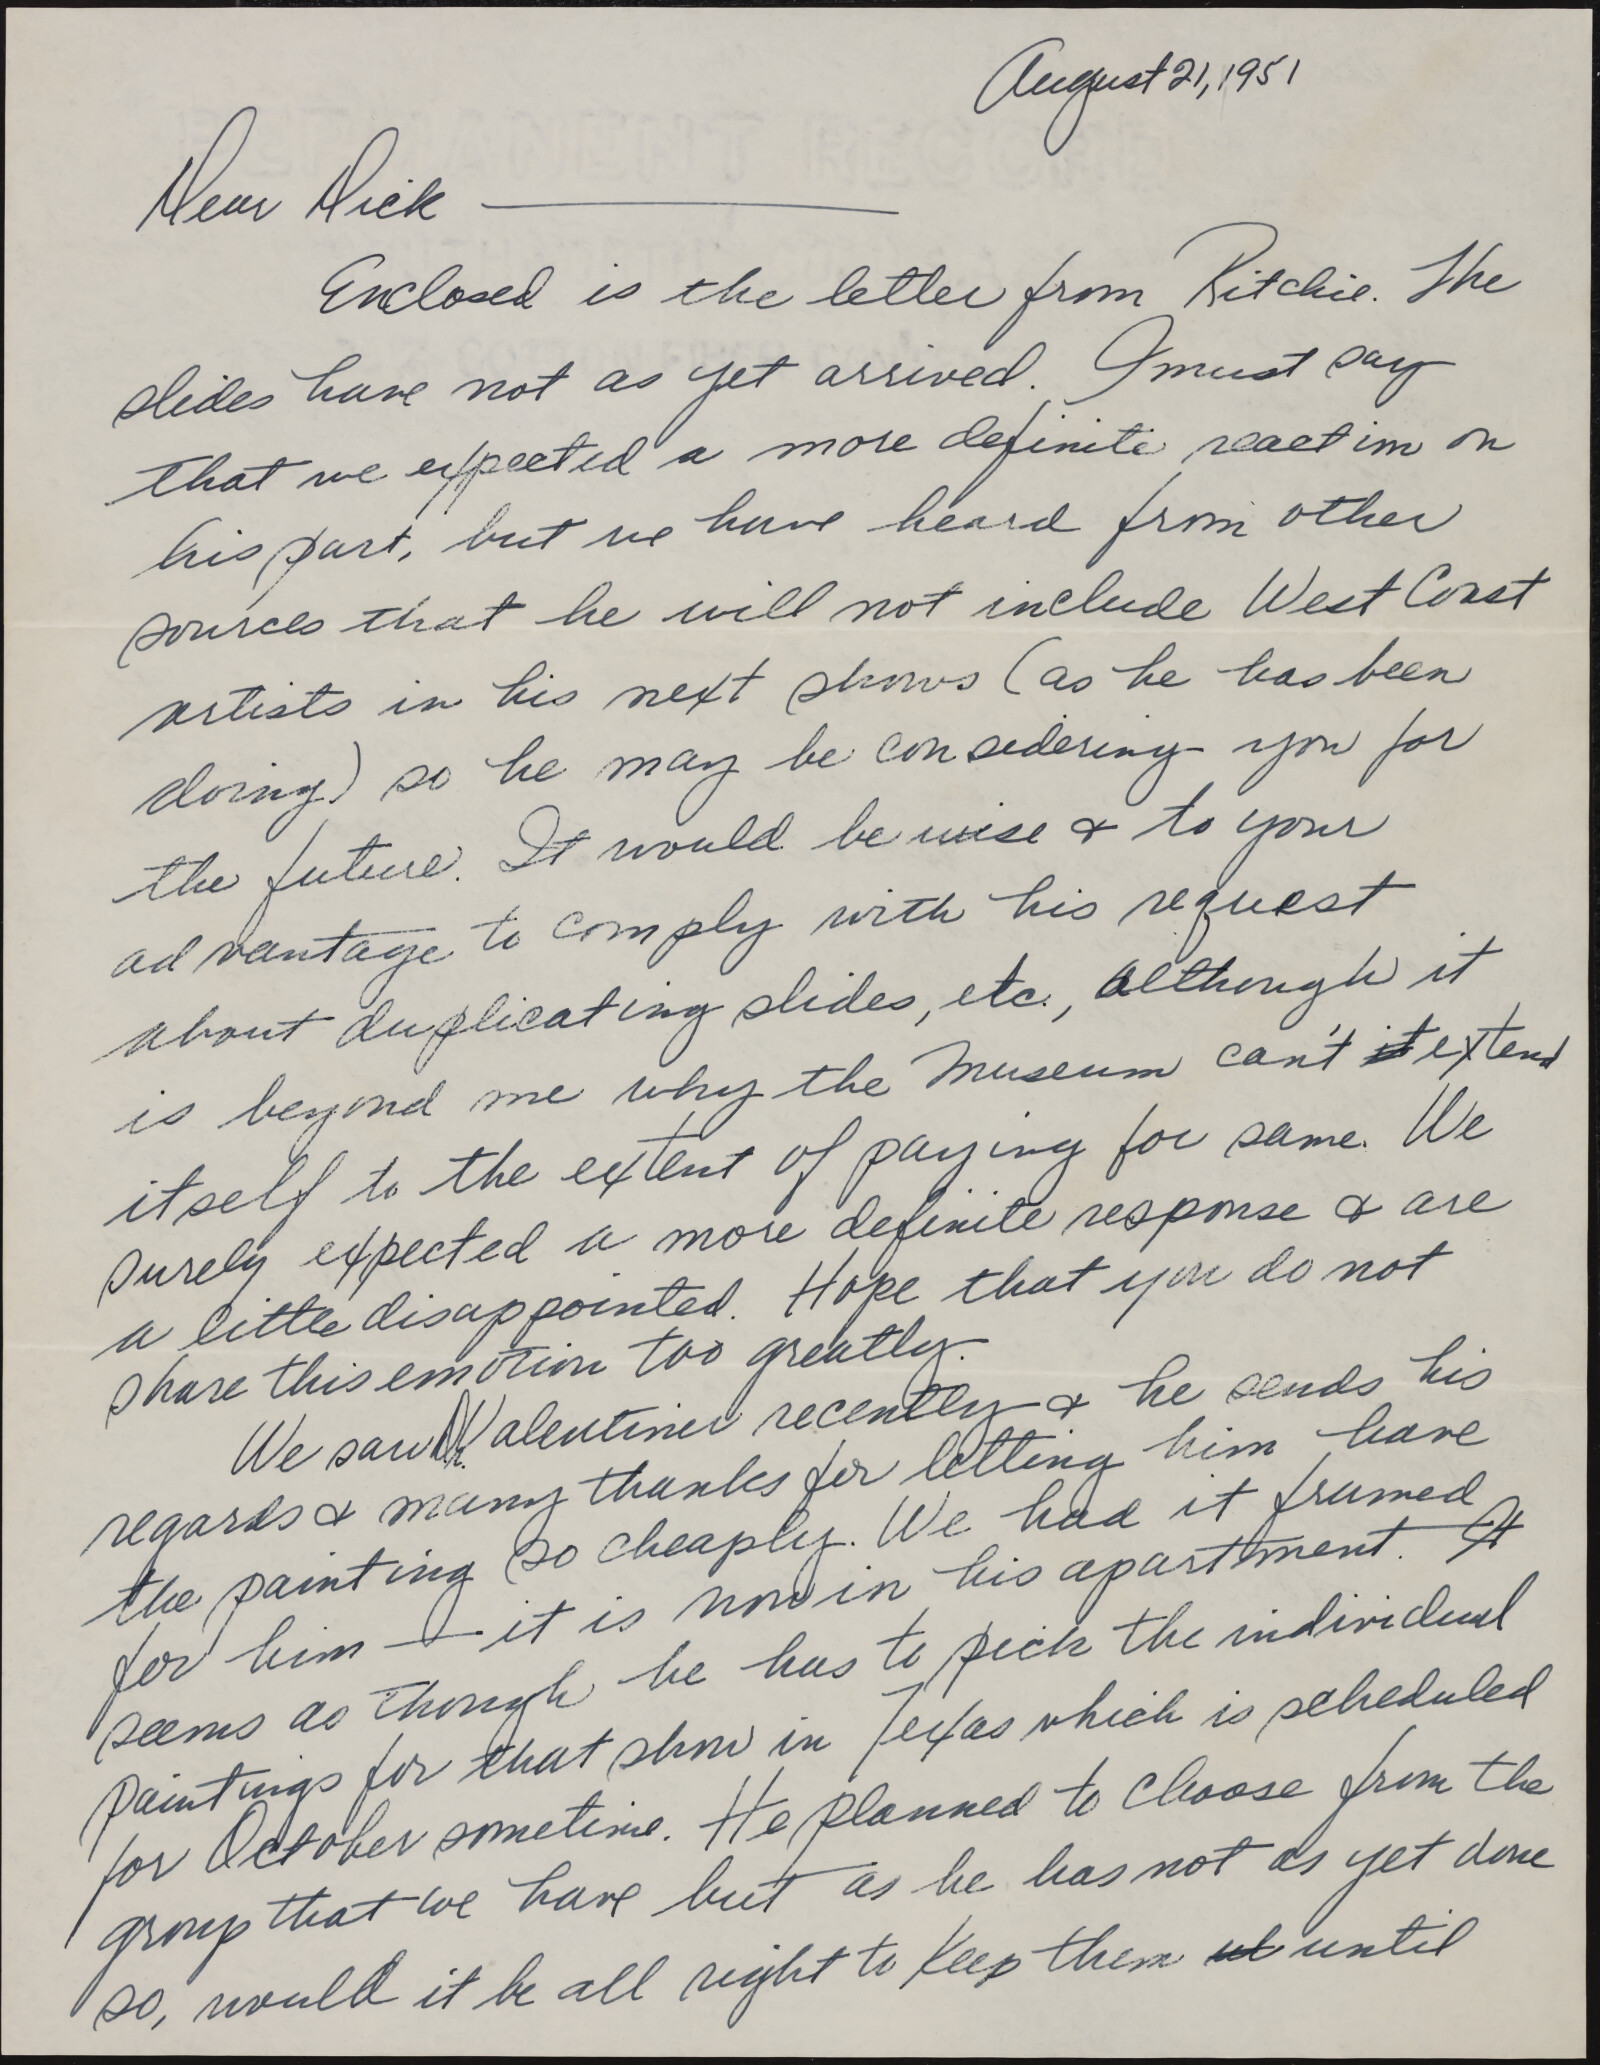 August 21, 1951
Dear Dick —
Enclosed is the letter from Ritchie. The
slides have not as yet arrived. I must say
that we expected a more definite reaction on
his part, but we have heard from other
sources that he will not include West Coast
artists in his next shows (as he has been
doing) so he may be considering you for
the future. It would be wise & to your
advantage to comply with his request
about duplicating slides, etc., although it
is beyond me why the Museum can't it extend
itself to the extent of paying for same. We
surely expected a more definite response & are
a little disappointed. Hope that you do not
share this emotion too greatly.
We saw Dr. Valentiner recently & he sends his
regards & many thanks for letting him have
the painting so cheaply. We had it framed
for him — it is now in his apartment. It
seems as though he has to pick the individual
paintings for that show in Texas which is scheduled
for October sometime. He planned to choose from the
group that we have but as he has not as yet done
so, would it be all right to keep them ut until